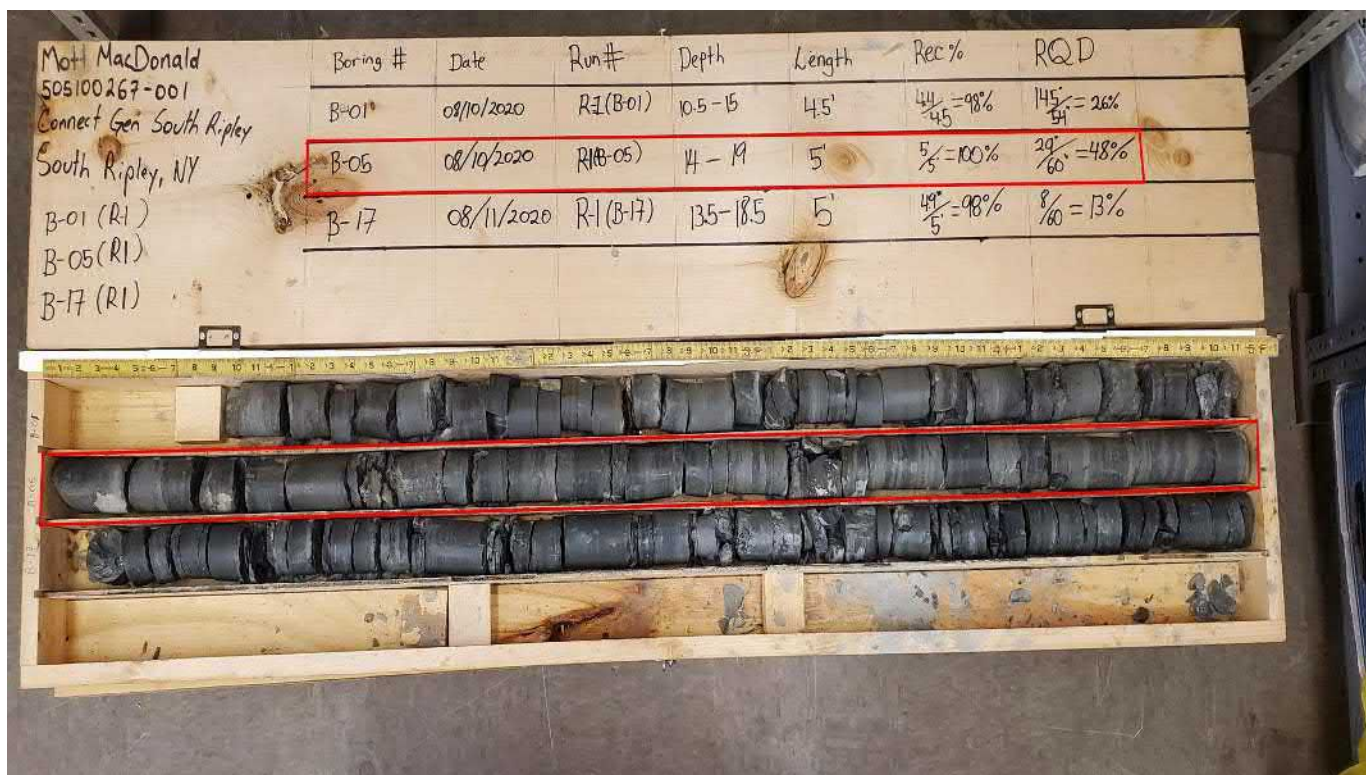 Mott MacDonald
505100267-001
Connect Gen South Ripley
South Ripley, NY
B-01 (R1)
B-05 (R1)
B-17 (R1)
Boring # Date Run# Depth Length Rec% RQD
B-01 08/10/2020 R1 (B-01) 10.5-15 4.5' 44/45=98% 14.5"/54"=26%
B-05 08/10/2020 R1(B-05) 14-19 5' 5/5=100% 29"/60"=48%
B-17 08/11/2020 R-1 (B-17) 13.5-18.5 5' 49"/5'=98% 8/60=13%
B-01
B-17